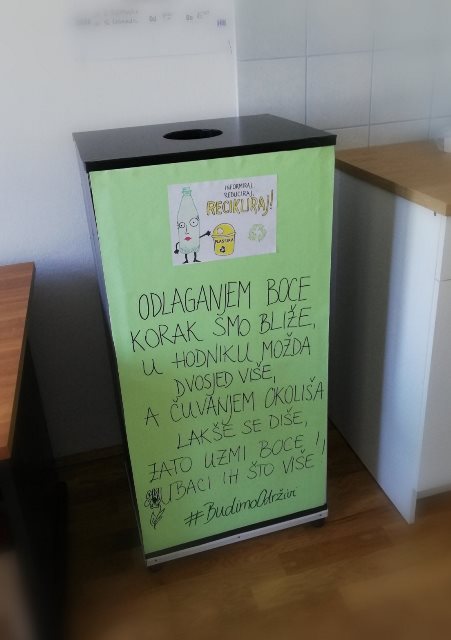 INFORMIRAJ,
REDUCIRAJ,
RECIKLIRAJ!
PLASTIKA
ODLAGANJEM BOCE
KORAK SMO BLIŽE,
U HODNIKU MOŽDA
DVOSJED VIŠE,
A ČUVANJEM OKOLIŠA
LAKŠE SE DIŠE,
ZATO UZMI BOCE I
UBACI IH ŠTO VIŠE!
#BudimoOdrživi